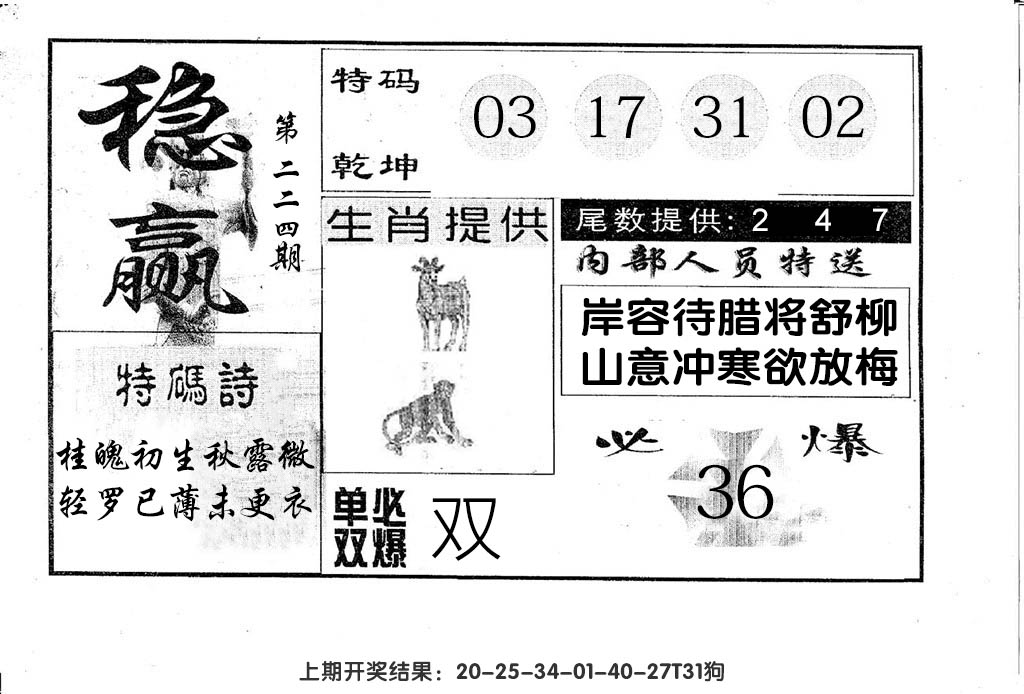 稳赢
第二二四期
特码
乾坤
03 17 31 02
生肖提供
尾数提供: 2 4 7
内部人员特送
岸容待腊将舒柳
山意冲寒欲放梅
特碼詩
桂魄初生秋露微
轻罗已薄未更衣
必爆
36
单双必爆
双
上期开奖结果：20-25-34-01-40-27T31狗